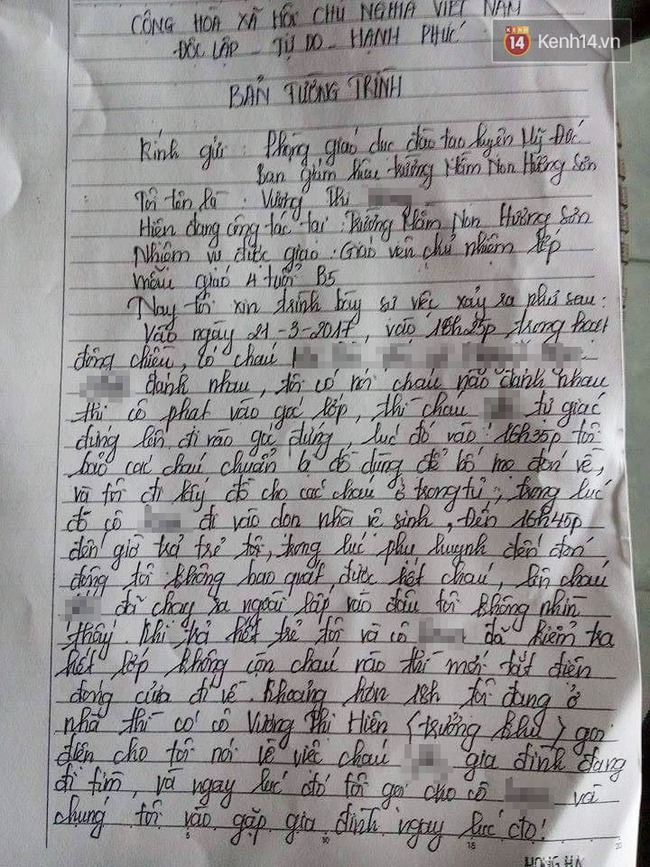 KENH 14 Kenh14.vn
CỘNG HÒA XÃ HỘI CHỦ NGHĨA VIỆT NAM
ĐỘC LẬP - TỰ DO - HẠNH PHÚC
BẢN TƯỜNG TRÌNH
Kính gửi : Phòng giáo dục đào tạo huyện Mỹ Đức
Ban giám hiệu trường Mầm Non Hương Sơn
Tôi tên là : Vương Thị
Hiện đang công tác tại : Trường Mầm Non Hương Sơn
Nhiệm vụ được giao : Giáo viên chủ nhiệm lớp
mẫu giáo 4 tuổi B5
Nay tôi xin trình bày sự việc xảy ra như sau :
Vào ngày 21-3-2017, vào 16h25p trong hoạt
động chiều, có cháu
đánh nhau, tôi có nói cháu nào đánh nhau
thì cô phạt vào góc lớp, thì cháu tự giác
đứng lên đi vào góc đứng, lúc đó vào 16h35p tôi
bảo các cháu chuẩn bị đồ dùng để bố mẹ đón về,
và tôi đi lấy đồ cho các cháu ở trong tủ, trong lúc
đó cô đi vào dọn nhà vệ sinh, Đến 16h45p
đến giờ trả trẻ tôi, trong lúc phụ huynh đến đón
đông tôi không bao quát được hết cháu, lên cháu
đã chạy ra ngoài lấp vào đâu tôi không nhìn
thấy. Khi trả hết trẻ tôi và cô đã kiểm tra
hết lớp không còn cháu nào thì mới tắt điện
đóng cửa đi về. Khoảng hơn 18h tôi đang ở
nhà thì có cô Vương Thị Hiên (trưởng khu) gọi
điện cho tôi nói về việc cháu gia đình đang
đi tìm, và ngay lúc đó tôi gọi cho cô và
chúng tôi vào gặp gia đình ngay lúc đó!
5 10 15 20
HONG HA